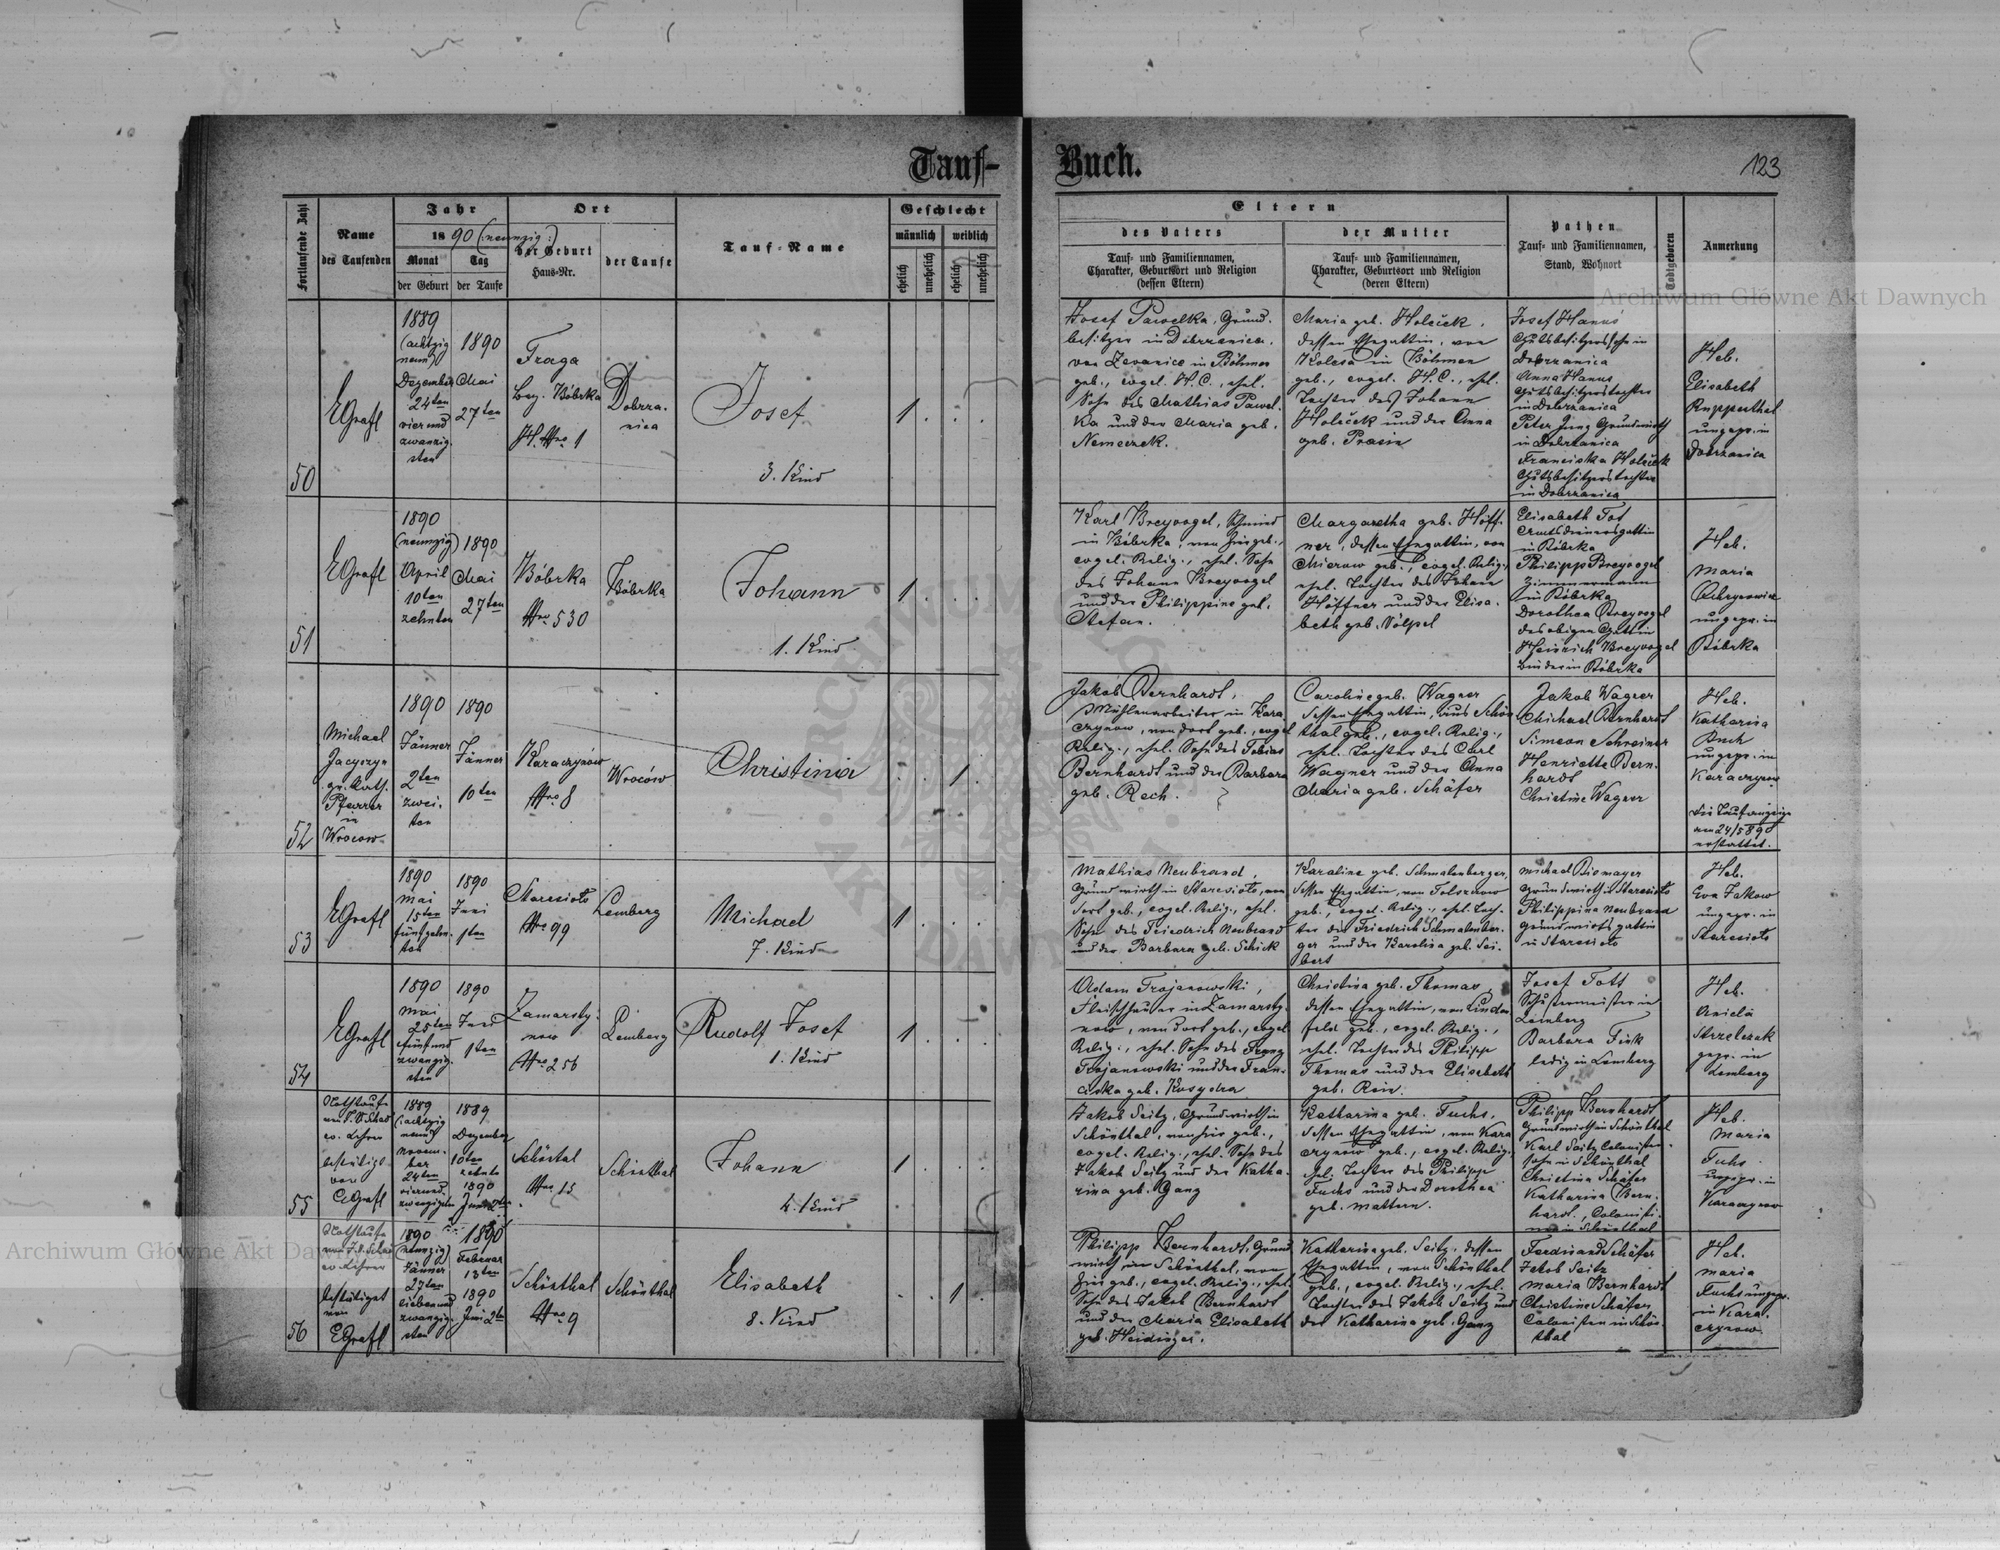 Tauf-
Buch.
123
Fortlaufende Zahl
Name
des Taufenden
Jahr
18 90 (neunzig:)
Monat
der Geburt
Tag
der Taufe
Ort
der Geburt
Haus-Nr.
der Taufe
Tauf-Name
Geschlecht
männlich
weiblich
ehelich
unehelich
ehelich
unehelich
Eltern
des Vaters
Tauf- und Familiennamen,
Charakter, Geburtsort und Religion
(dessen Eltern)
der Mutter
Tauf- und Familiennamen,
Charakter, Geburtsort und Religion
(deren Eltern)
Pathen
Tauf- und Familiennamen,
Stand, Wohnort
Todtgeboren
Anmerkung
Archiwum Główne Akt Dawnych
50
EGrafl
1889
(achtzig
neun)
Dezember
24ten
vier und
zwanzig-
sten
1890
Mai
27ten
Fraga
Bez. Bóbrka
H. Nro 1
Dobrza-
nica
Josef
3. Kind
1
Josef Pawelka, Grund-
besitzer in Dobrzanica,
von Zevanice in Böhmen
geb., evgel. H.C., ehel.
Sohn des Mathias Pawel-
ka und der Maria geb.
Nemeczek.
Maria geb. Holeček,
dessen Ehegattin, von
Kolesa in Böhmen
geb., evgel. H.C., ehel.
Tochter des Johann
Holeček und der Anna
geb. Prasin
Josef Hanus
Gutsbesitzerssohn in
Dobrzanica
Anna Hanus
Gutsbesitzerstochter
in Dobrzanica
Peter Jung Grundwirth
in Dobrzanica
Franciska Holeček
Gutsbesitzerstochter
in Dobrzanica
Heb.
Elisabeth
Rupperthal
ungepr. in
Dobrzanica
51
EGrafl
1890
(neunzig)
April
10ten
zehnten
1890
Mai
27ten
Bóbrka
Nro 530
Bóbrka
Johann
1. Kind
1
Karl Breyvogel, Schmied
in Bóbrka, von hier geb.,
evgel. Relig., ehel. Sohn
des Johann Breyvogel
und der Philippine geb.
Stefan.
Margaretha geb. Höff-
ner, dessen Ehegattin, von
Mierow geb., evgel. Relig.,
ehel. Tochter des Johann
Höffner und der Elisa-
beth geb. Völpel
Elisabeth Tot
Amtsdienersgattin
in Bóbrka
Philipp Breyvogel
Zimmermann
in Bóbrka
Dorothea Breyvogel
des obigen Gattin
Heinrich Breyvogel
Binder in Bóbrka
Heb.
Maria
ungepr. in
Bóbrka
52
Michael
Jacyszyn
gr. kath.
Pfarrer
in
Wrocow
1890
Jänner
2ten
zwei-
ten
1890
Jänner
10ten
Karaczynów
Nro 8
Wroców
Christina
1
Jakob Bernhardt,
Mühlenarbeiter in Kara-
czynow, von dort geb., evgel.
Relig., ehel. Sohn des Tobias
Bernhardt und der Barbara
geb. Rech.
Caroline geb. Wagner
dessen Ehegattin, aus Schön-
thal geb., evgel. Relig.,
ehel. Tochter des Carl
Wagner und der Anna
Maria geb. Schäfer
Jakob Wagner
Michael Bernhardt
Simeon Schreiner
Henriette Bern-
hardt
Christine Wagner
Heb.
Katharina
ungepr. in
Karaczynow
die Taufanzeige
am 24/5 890
erstattet.
53
EGrafl
1890
Mai
15ten
fünfzehn-
ten
1890
Juni
1ten
Staresioło
Nro 99
Lemberg
Michael
7. Kind
1
Mathias Neubrand,
Grundwirth in Staresioło, von
dort geb., evgel. Relig., ehel.
Sohn des Friedrich Neubrand
und der Barbara geb. Schick
Karoline geb. Schmalenberger,
dessen Ehegattin, von Tolszczow
geb., evgel. Relig., ehel. Toch-
ter des Friedrich Schmalenber-
ger und der Karolina geb. Sei-
bert
Michael Bismayer
Grundwirth in Staresioło
Philippina Neubrand
Grundwirthsgattin
in Staresioło
Heb.
Eva Jakow
ungepr. in
Staresioło
54
EGrafl
1890
Mai
25ten
fünf und
zwanzig-
sten
1890
Juni
1ten
Zamarsty-
now
Nro 256
Lemberg
Rudolf Josef
1. Kind
1
Adam Trojanowski,
Fleischhauer in Zamarsty-
now, von dort geb., evgel.
Relig., ehel. Sohn des Franz
Trojanowski und der Fran-
ciska geb. Kosydra
Christina geb. Thomas,
dessen Ehegattin, von Linden-
feld geb., evgel. Relig.,
ehel. Tochter des Philipp
Thomas und der Elisabeth
geb. Rein.
Josef Tott
Schustermeister in
Lemberg
Barbara Fink
ledig in Lemberg
Heb.
Aniela
Strzelczak
gepr. in
Lemberg
55
Nothtaufe
ev. Lehrer
bestätigt
von
EGrafl
1889
(achtzig
neun)
Novem-
ber
24ten
vierund-
zwanzigsten
1889
Dezember
10ten
zehnte
1890
Juni 2ten
Schöntal
Nro 15
Schönthal
Johann
4. Kind
1
Jakob Seitz, Grundwirth in
Schönthal, von hier geb.,
evgel. Relig., ehel. Sohn des
Jakob Seitz und der Katha-
rina geb. Ganz
Katharina geb. Fuchs,
dessen Ehegattin, von Kara-
czynow geb., evgel. Relig.
hel. Tochter des Philipp
Fuchs und der Dorothea
geb. Mattern.
Philipp Bernhardt
Grundwirth in Schönthal
Karl Seitz Colonisten-
sohn in Schönthal
Christina Schäfer
Katharina Bern-
hardt, Colonisti-
nen in Schönthal
Heb.
Maria
Fuchs
ungepr. in
Karaczynow
56
Nothtaufe
ev. Lehrer
bestätiget
von
EGrafl
1890
(neunzig)
Jänner
27ten
sieben und
zwanzig-
sten
1890
Februar
13ten
1890
Juni 2ten
Schönthal
Nro 9
Schönthal
Elisabeth
8. Kind
1
Philipp Bernhardt, Grund-
wirth in Schönthal, von
hier geb., evgel. Relig., ehel.
Sohn des Jakob Bernhardt
und der Maria Elisabeth
geb. Heidinger.
Katharina geb. Seitz, dessen
Ehegattin, von Schönthal
geb., evgel. Relig., ehel.
Tochter des Jakob Seitz und
der Katharina geb. Ganz
Ferdinand Schäfer
Jakob Seitz
Maria Bernhardt
Christina Schäfer
Colonisten in Schön-
thal
Heb.
Maria
Fuchs ungepr.
in Kara-
czynow
Archiwum Główne Akt Dawnych